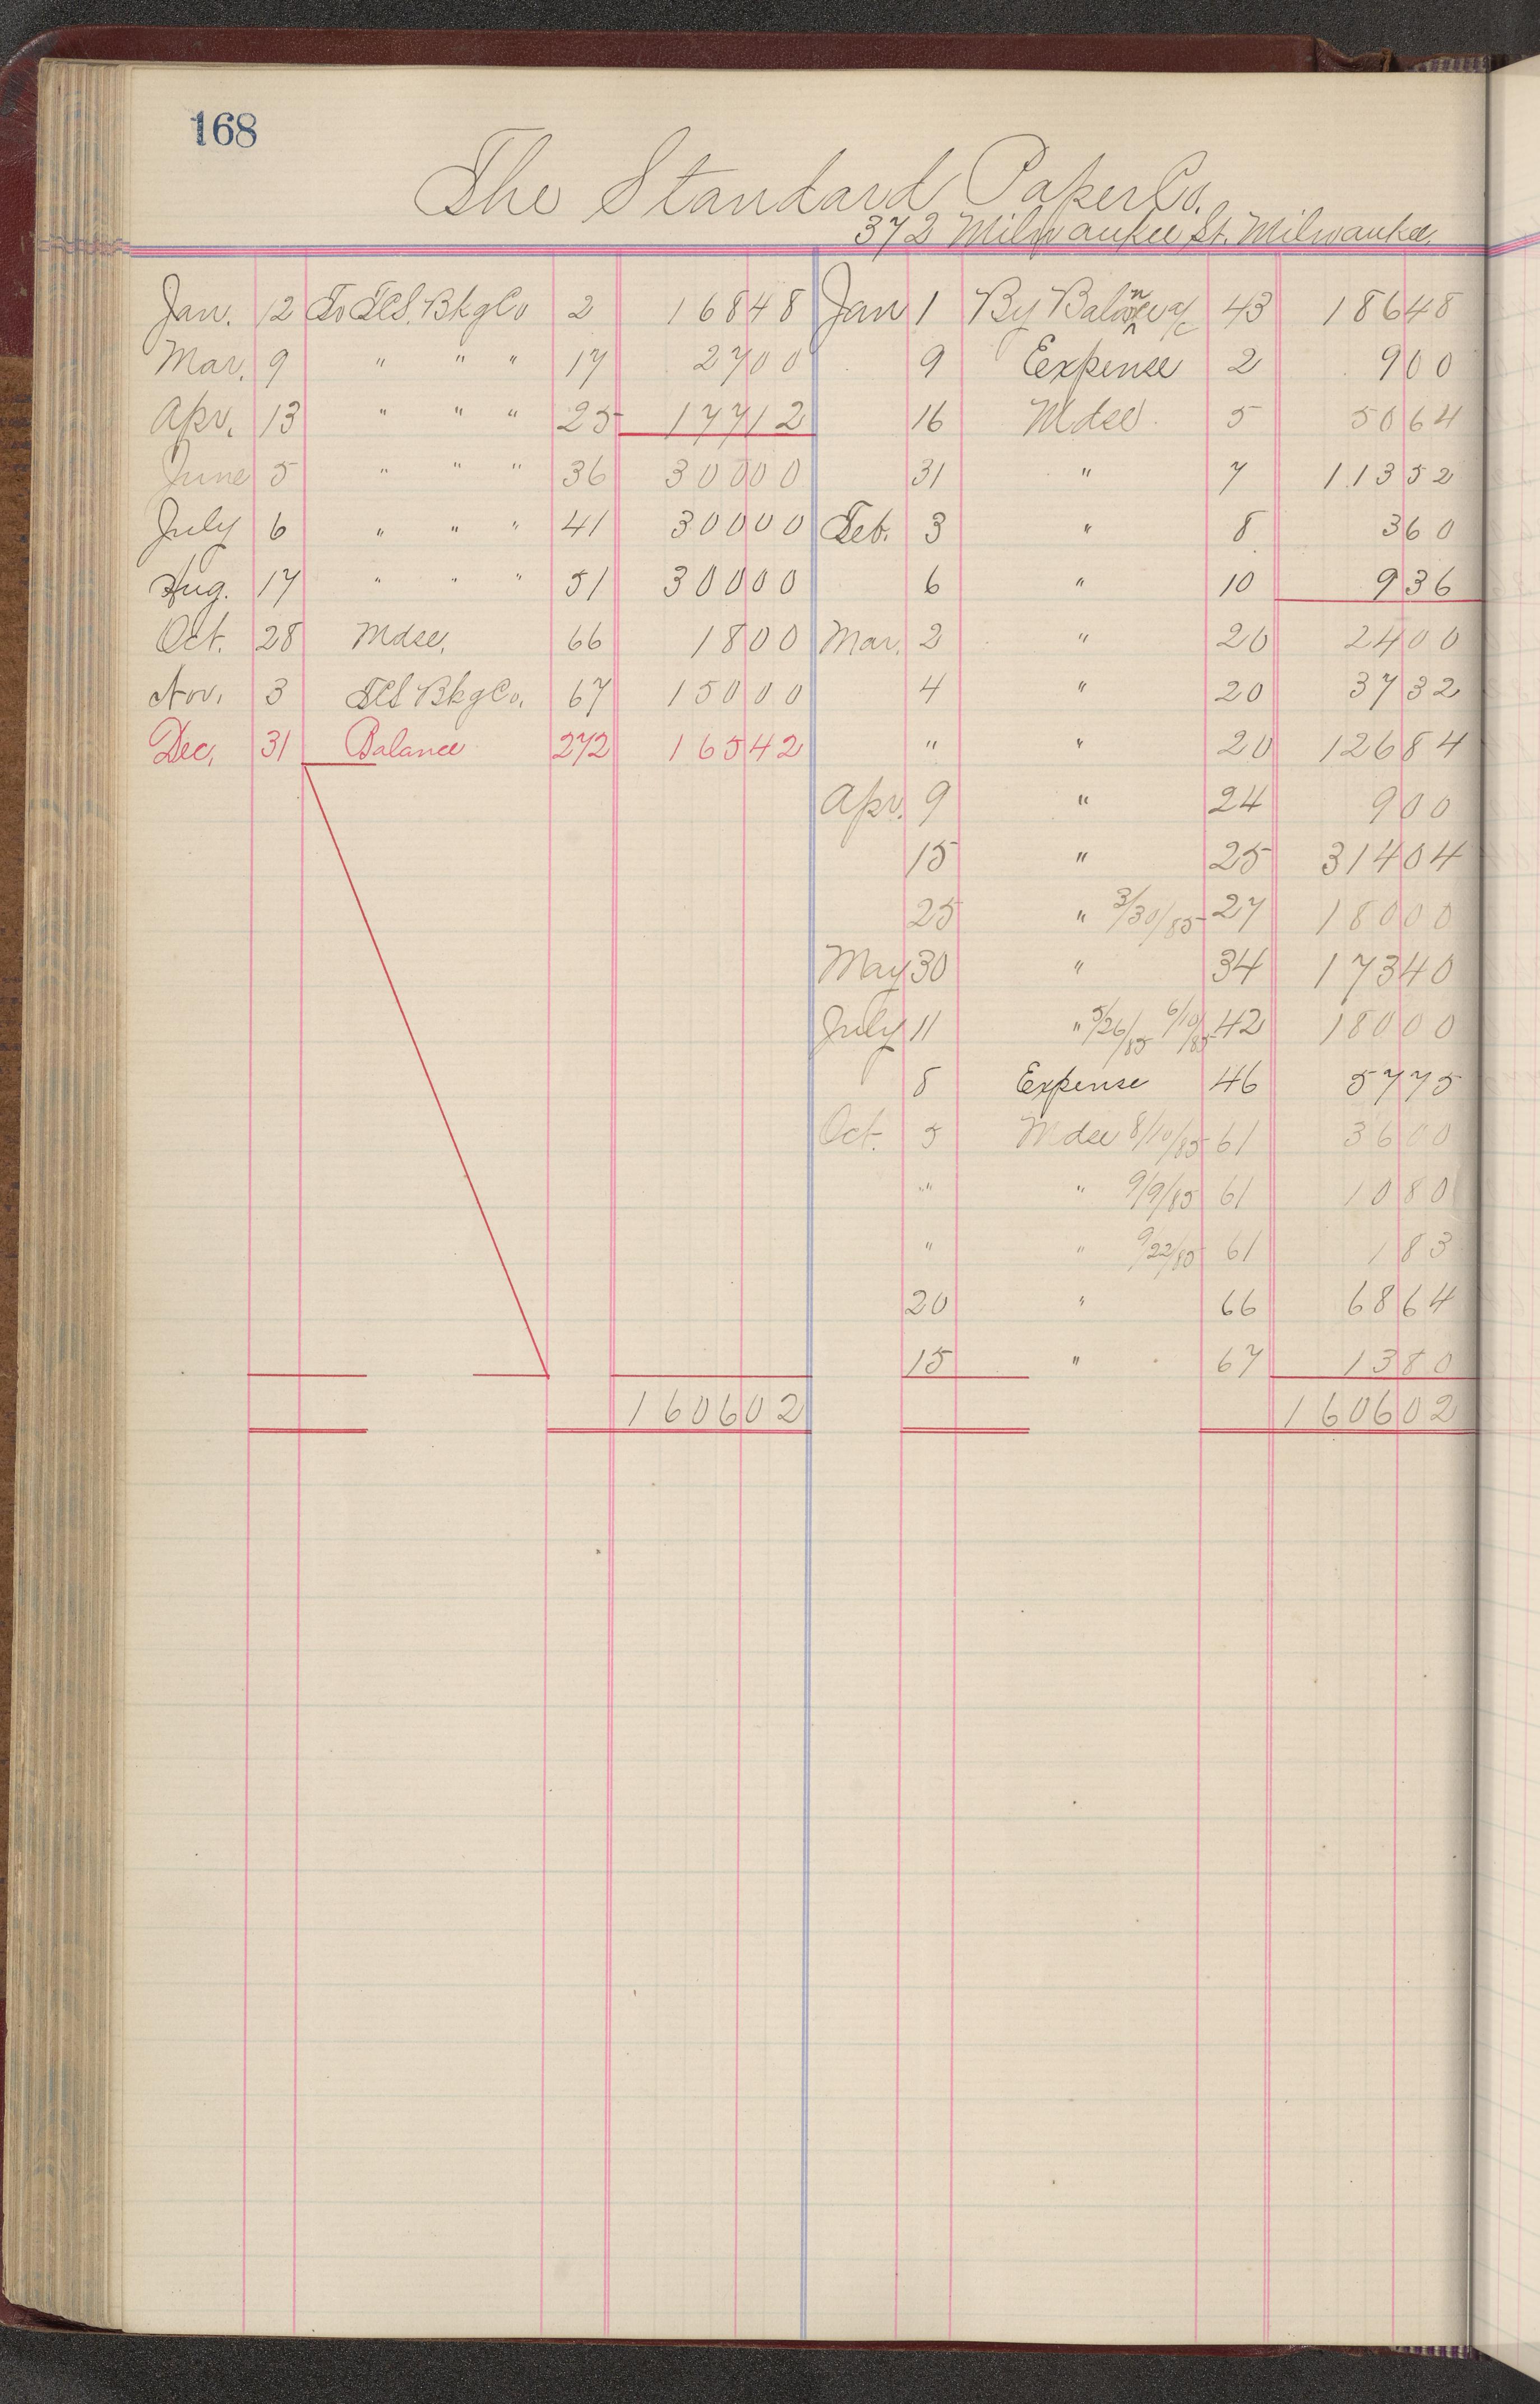 168
The Standard Paper Co.
372 Milwaukee St. Milwaukee.
Jan. 12 To F.C.S. Bkg Co 2 168 48 Jan 1 By Balance a/c 43 186 48
Mar. 9 " " " 17 27 00 9 Expense 2 9 00
Apr. 13 " " " 25 177 12 16 Mdse. 5 50 64
June 5 " " " 36 300 00 31 " 7 113 52
July 6 " " " 41 300 00 Feb. 3 " 8 3 60
Aug. 17 " " " 51 300 00 6 " 10 9 36
Oct. 28 Mdse. 66 18 00 Mar. 2 " 20 24 00
Nov. 3 F.C.S Bkg Co. 67 150 00 4 " 20 37 32
Dec. 31 Balance 272 165 42 " " 20 126 84
Apr. 9 " 24 9 00
15 " 25 314 04
25 " 3/30/85 27 180 00
May 30 " 34 173 40
July 11 " 5/26/85 6/10/85 42 180 00
8 Expense 46 57 75
Oct. 5 Mdse 8/10/85 61 36 00
" " 9/9/85 61 10 80
" " 9/22/85 61 1 83
20 " 66 68 64
15 " 67 13 80
1606 02 1606 02